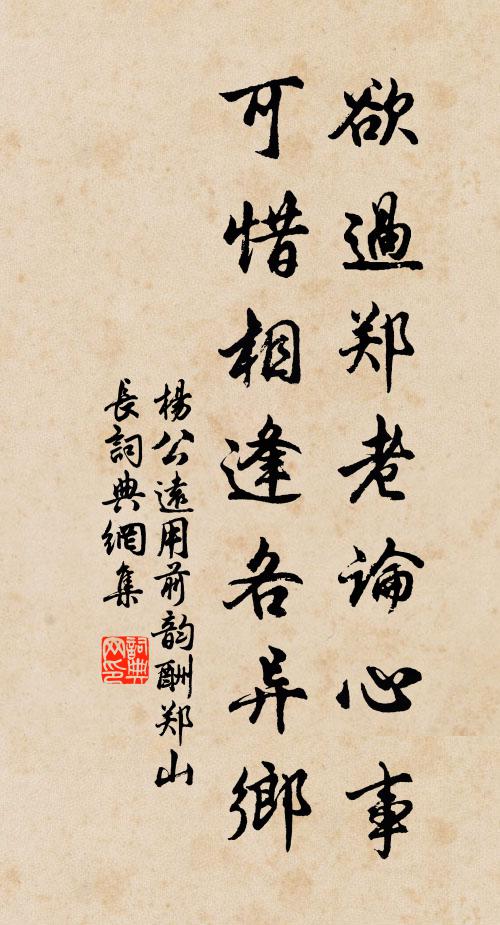 欲過郑老論心事
可惜相逢各异鄉
楊公遠用前韵酬郑山
長詞典網集
詞典
网印